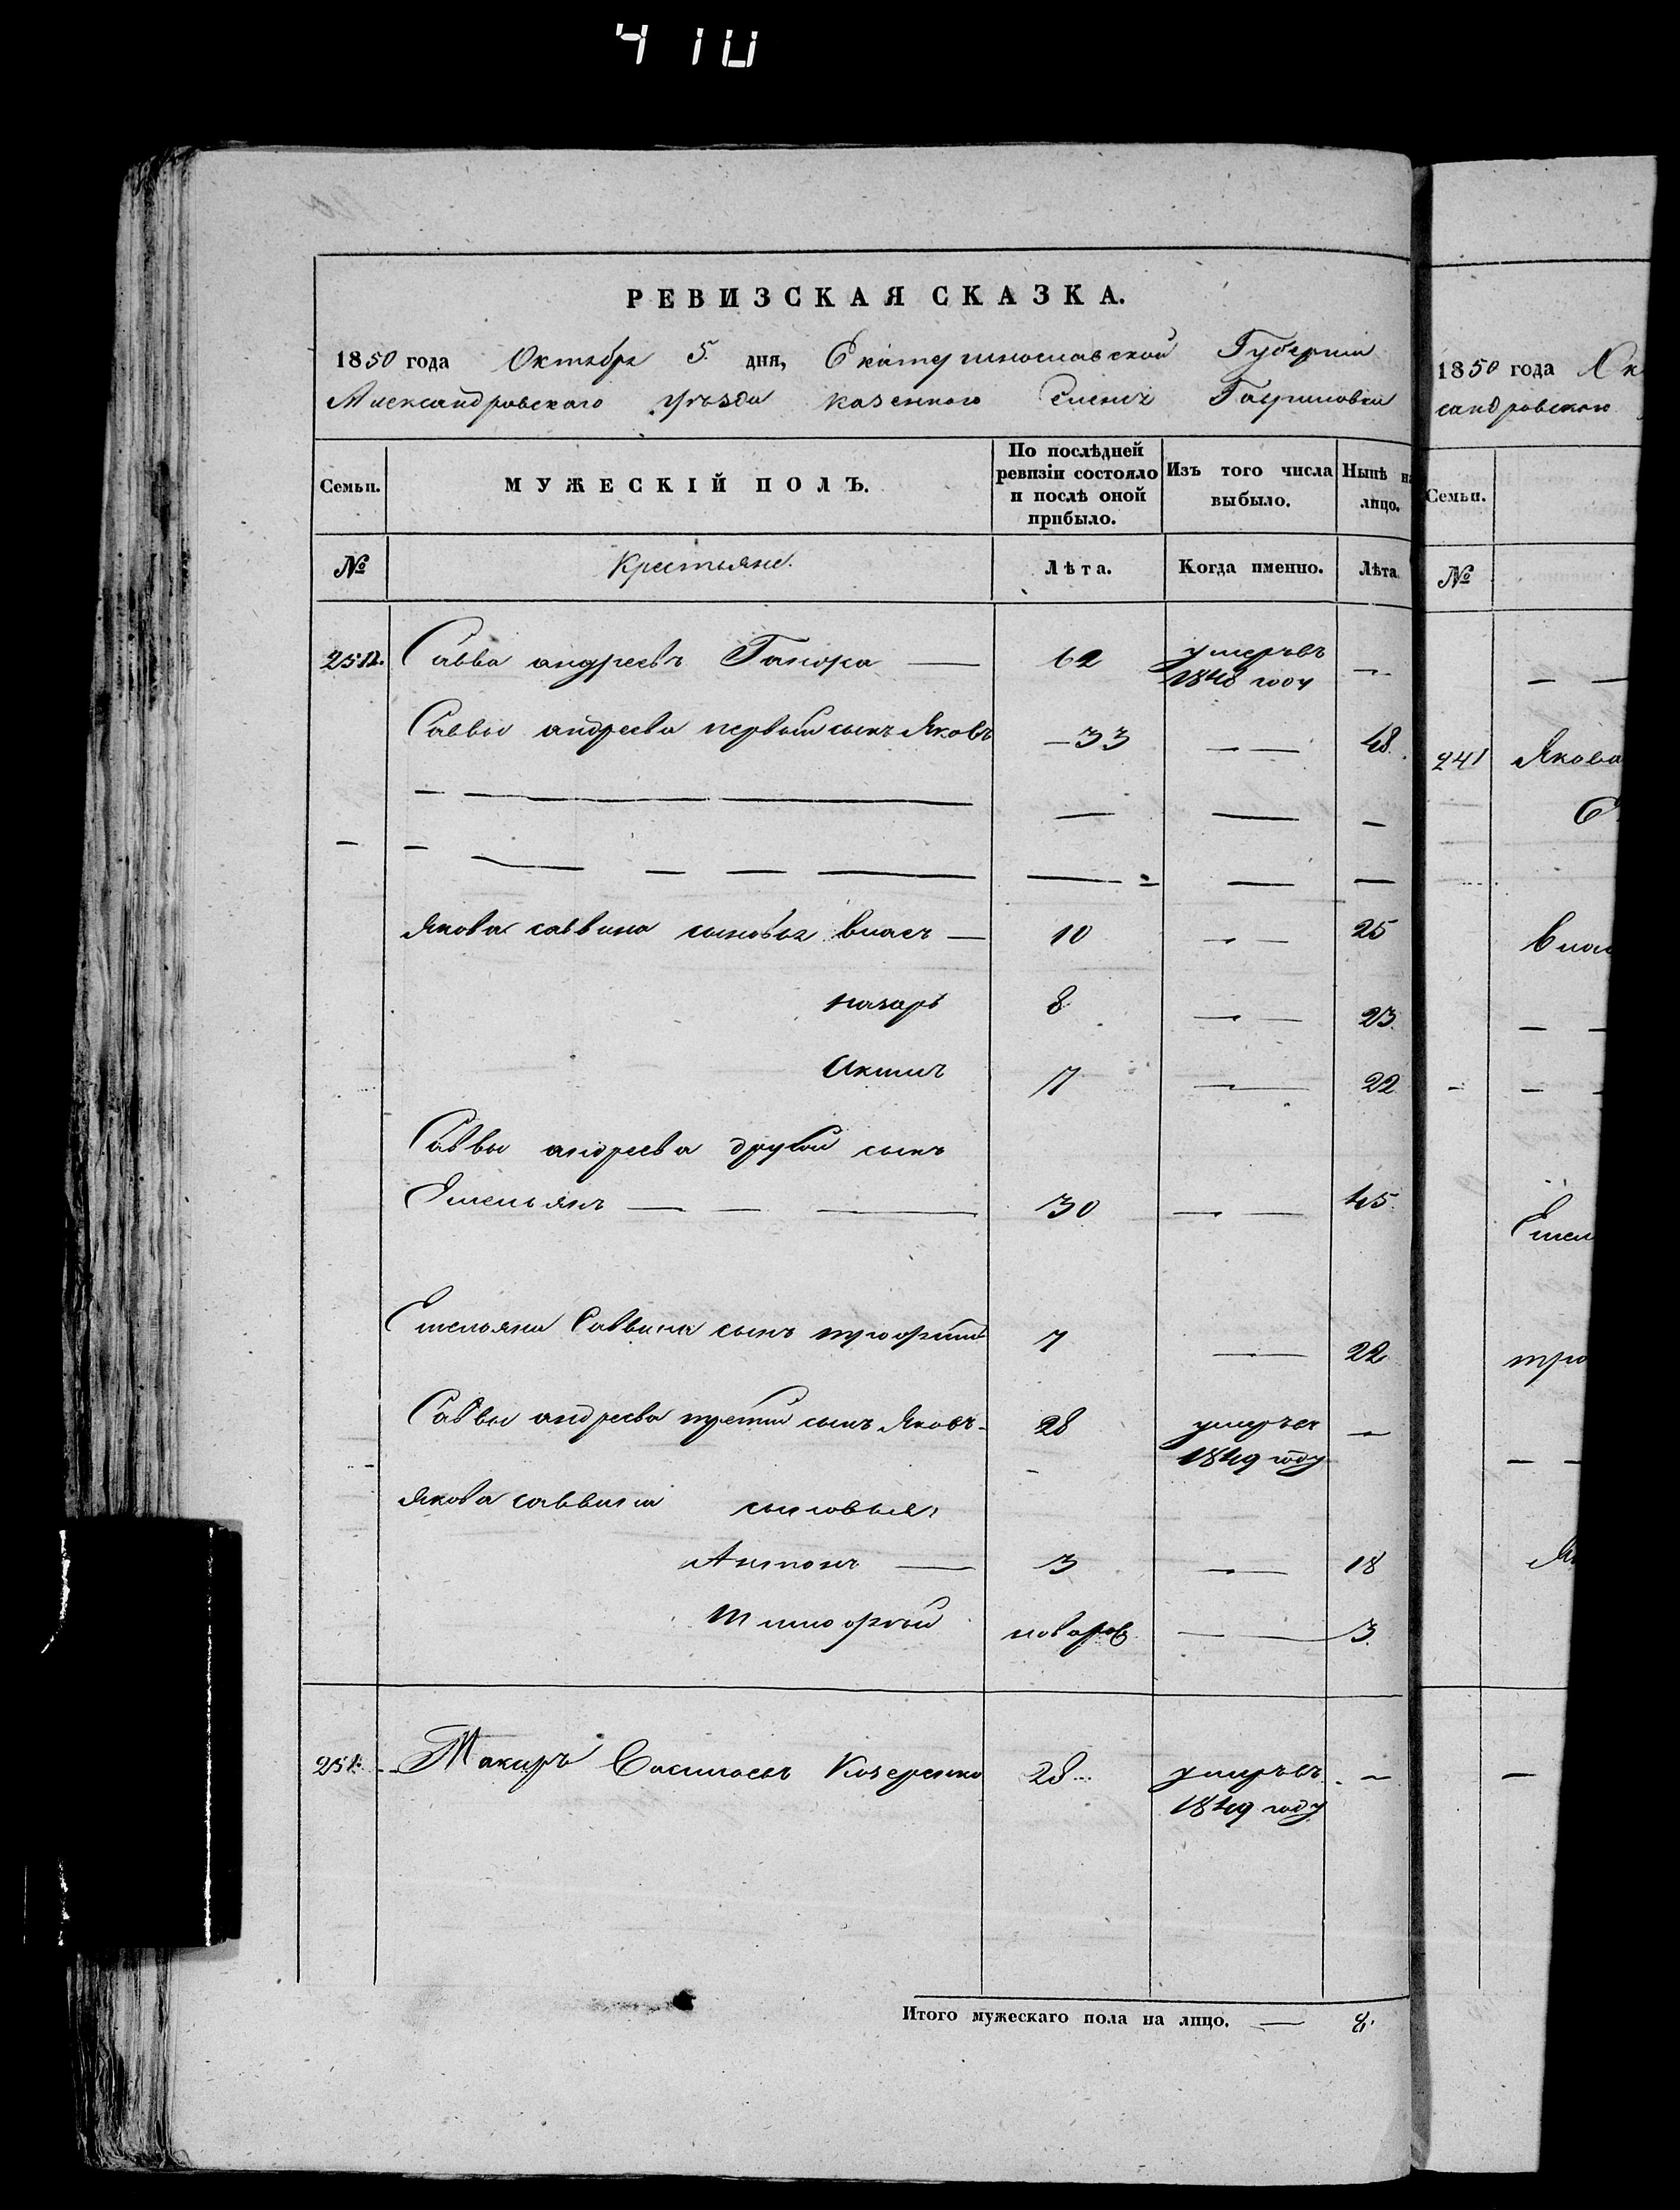 410
РЕВИЗСКАЯ СКАЗКА.
1850 года Октября 5 дня, Екатеринославской Губернии
Александровскаго уѣзда казенного Гавриловки
Семьи. МУЖЕСКІЙ ПОЛЪ. По послѣдней ревизіи состояло и послѣ оной прибыло. Изъ того числа выбыло. Нынѣ на лицо.
№ Крестьяне. Лѣта. Когда именно. Лѣта.
Савва андреевъ 62 умеръвъ 1848 году —
Саввы андреева первый сынъ Яковъ — 33 — — 48.
Якова саввина сыновья власъ — 10 — — 25
назаръ 8 — — 23.
Акимъ 7 — 22
Саввы андреева другой сынъ
Емельянъ — — — 30 — — 45.
Емельяна Саввина сынъ трофимъ 7 — 22
Саввы андреева третий сынъ Яковъ - 28 умеръвъ 1849 году —
Якова саввина сыновья
Антонъ — 3 — 18
Тимофѣй новорож — 3.
251. Макаръ Козеренко 28 умеръвъ 1849 году —
Итого мужескаго пола на лицо. — 8.
1850 года Ок
сандровского
Семьи.
№
241 Якова
влас
Емел
тро